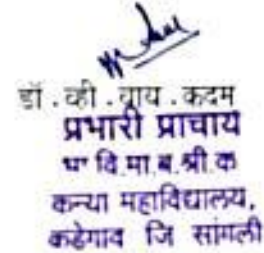 डॉ . व्ही . वाय . कदम
प्रभारी प्राचार्य
वि.मा.ब.श्री.क
कन्या महाविद्यालय,
कडेगाव जि सांगली